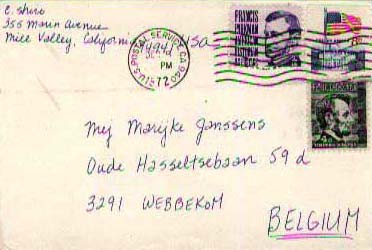 e. shiro
355 Marin Avenue
Mill Valley, California 94941 USA
U.S. POSTAL SERVICE CA 940
PM
1972
FRANCIS
PARKMAN
LINCOLN
Mej Marijke Janssens
Oude Hasseltsebaan 59d
3291 WEBBEKOM
BELGIUM